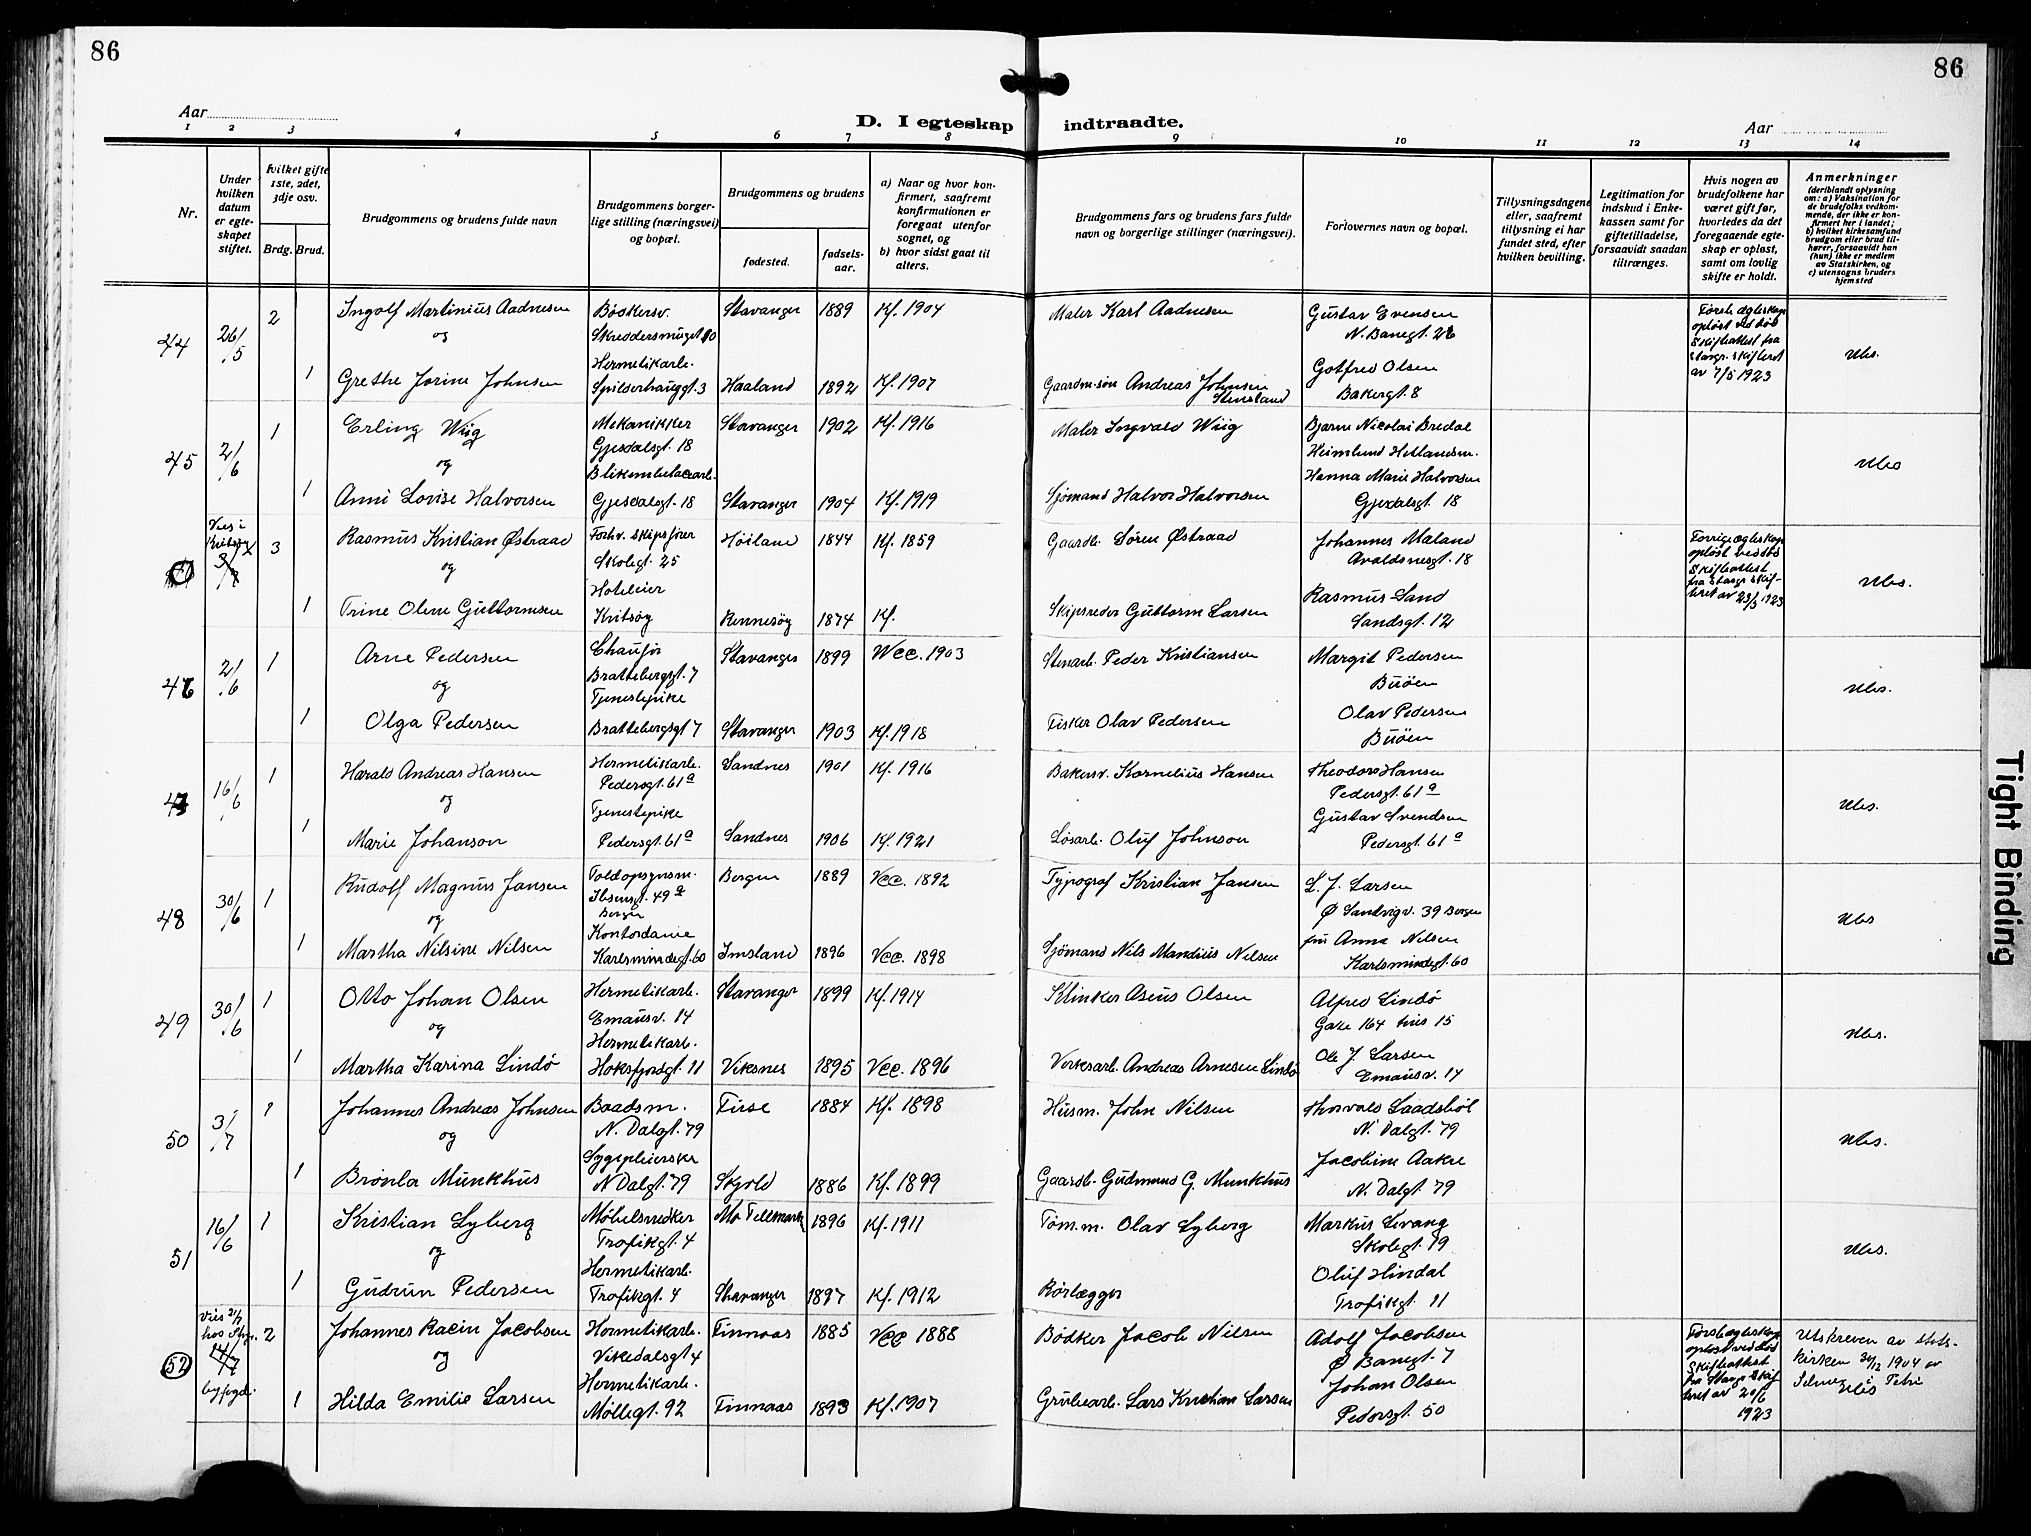 86
86
Aar
D. I egteskap indtraadte.
Aar
1 2 3 4 5 6 7 8 9 10 11 12 13 14
Nr.
Under hvilken datum er egteskapet stiftet.
hvilket gifte 1ste, 2det, 3dje osv.
Brdg. Brud.
Brudgommens og brudens fulde navn
Brudgommens borgerlige stilling (næringsvei) og bopæl.
Brudgommens og brudens
fødested.
fødselsaar.
a) Naar og hvor konfirmert, saafremt konfirmationen er foregaat utenfor sognet, og
b) hvor sidst gaat til alters.
Brudgommens fars og brudens fars fulde navn og borgerlige stillinger (næringsvei).
Forlovernes navn og bopæl.
Tillysningsdagene eller, saafremt tillysning ei har fundet sted, efter hvilken bevilling.
Legitimation for indskud i Enkekassen samt for giftetilladelse, forsaavidt saadan tiltrænges.
Hvis nogen av brudefolkene har været gift før, hvorledes da det foregaaende egteskap er opløst, samt om lovlig skifte er holdt.
Anmerkninger
(deriblandt oplysning om: a) Vaksination for de brudefolks vedkommende, der ikke er konfirmert her i landet; b) hvilket kirkesamfund brudgom eller brud tilhører, forsaavidt han (hun) ikke er medlem av Statskirken, og c) utensogns bruders hjemsted
44 26/5 2 Ingolf Martinius Aadnesen Bødkersv. Stavanger 1889 Kf. 1904 Maler Karl Aadnesen Gustav Evensen
og Skreddersmuget 10 N. Banegt 26
Hermetikarb. Gotfred Olsen
1 Grethe Jorine Johnsen Spilderhauggt. 3 Haaland 1892 Kf. 1907 Gaardm.søn Andreas Johnsen Stensland Bakergt. 8
Første egteskap opløst ved død Skifteattest fra Stavgr. skifteret av 7/5 1923
Ubs.
45 2/6 1 Erling Wiig Mekanikker Stavanger 1902 Kf. 1916 Maler Ingvald Wiig Bjarne Nicolai Bredal
og Gjesdalsgt. 18 Heimlund Hetlandsm.
Hanna Marie Halvorsen
1 Anni Lovise Halvorsen Gjesdalsgt. 18 Stavanger 1904 Kf. 1919 Sjømand Halvor Halvorsen Gjesdalsgt. 18
Ubs
Viet i Kvitsøy
3 Rasmus Kristian Østraad Forhv. skipsfører Høiland 1844 Kf. 1859 Gaardb. Søren Østraad Johannes Maland
og Skolegt. 25 Avaldsnesgt. 18
Hoteleier Rasmus Sand
1 Trine Oline Guttormsen Kvitsøy Rennesøy 1874 Kf. Skipsreder Guttorm Larsen Sandsgt. 12
Forrige egteskap opløst ved død Skifteattest fra Stavgr skifteret av 23/5 1923
Ubs.
46 2/6 1 Arne Pedersen Chaufør Stavanger 1899 Wcc. 1903 Stenarb. Peder Kristiansen Margit Pedersen
og Brattebergsgt. 7 Buøen
Tjenestepike Olav Pedersen
1 Olga Pedersen Brattebergsgt 7 Stavanger 1903 Kf. 1918 Fisker Olav Pedersen Buøen
Ubs.
47 16/6 1 Harald Andreas Hansen Hermetikarb. Sandnes 1901 Kf. 1916 Bakersv. Kornelius Hansen Theodor Hansen
og Pedersgt. 61a Pedersgt. 61a
Tjenestepike Gustav Svendsen
1 Marie Johanson Pedersgt. 61a Sandnes 1906 Kf. 1921 Løsarb. Oluf Johnson Pedersgt. 61a
Ubs.
48 30/6 1 Rudolf Magnus Jansen Toldopsynsm. Bergen 1889 Vcc. 1892 Typograf Kristian Jansen L. J. Larsen
og Ibsensgt. 49a Bergen Ø Sandvigv. 39 Bergen
Kontordame fru Anna Nilsen
1 Martha Nilsine Nilsen Karlsmindegt. 60 Imsland 1896 Vcc. 1898 Sjømand Nils Mandius Nilsen Karlsmindegt. 60
Ubs
49 30/6 1 Otto Johan Olsen Hermetikarb. Stavanger 1899 Kf. 1914 Klinker Aseus Olsen Alfred Lindø
og Emausv. 14 Gate 164 hus 15
Hermetikarb. Ole J. Larsen
1 Martha Karina Lindø Hoksfjordgt. 11 Viksnes 1895 Vcc. 1896 Verksarb. Andreas Arnesen Lindø Emausv. 14
Ubs.
50 3/7 1 Johannes Andreas Johnsen Baadsm. 1884 Kf. 1898 Husm. John Nilsen Thorvald Laadsbøl
og N. Dalgt. 79 N. Dalgt. 79
Sygepleierske Jacobine Aakre
1 Brønla Munkhus N. Dalgt. 79 Skjold 1886 Kf. 1899 Gaardb. Gudmund G. Munkhus N. Dalgt. 79
Ubs.
51 16/6 1 Kristian Lyberg Møbelsnedker Mo Tellmark 1896 Kf. 1911 Tøm.m. Olav Lyberg Markus Levang
og Trofikgt. 4 Skolegt. 19
Hermetikarb. Oluf Hindal
1 Gudrun Pedersen Trofikgt. 4 Stavanger 1897 Kf. 1912 Rørlegger Trofikgt. 11
Ubs.
Vies 21/7 hos Stvgr. byfogd.
52 14/7 2 Johannes Racin Jacobsen Hermetikarb. Finnaas 1885 Vcc 1888 Bødker Jacob Nilsen Adolf Jacobsen
og Vikedalsgt 4 Ø Banegt. 7
Hermetikarb. Johan Olsen
1 Hilda Emilie Larsen Møllegt. 92 Finnaas 1893 Kf. 1907 Grubearb. Lars Kristian Larsen Pedersgt. 50
Første egteskap opløst ved død Skifteattest fra Stavgr Skifteret av 20/6 1923
Utskreven av statskirken 31/12 1904 av
Ubs
Tight Binding